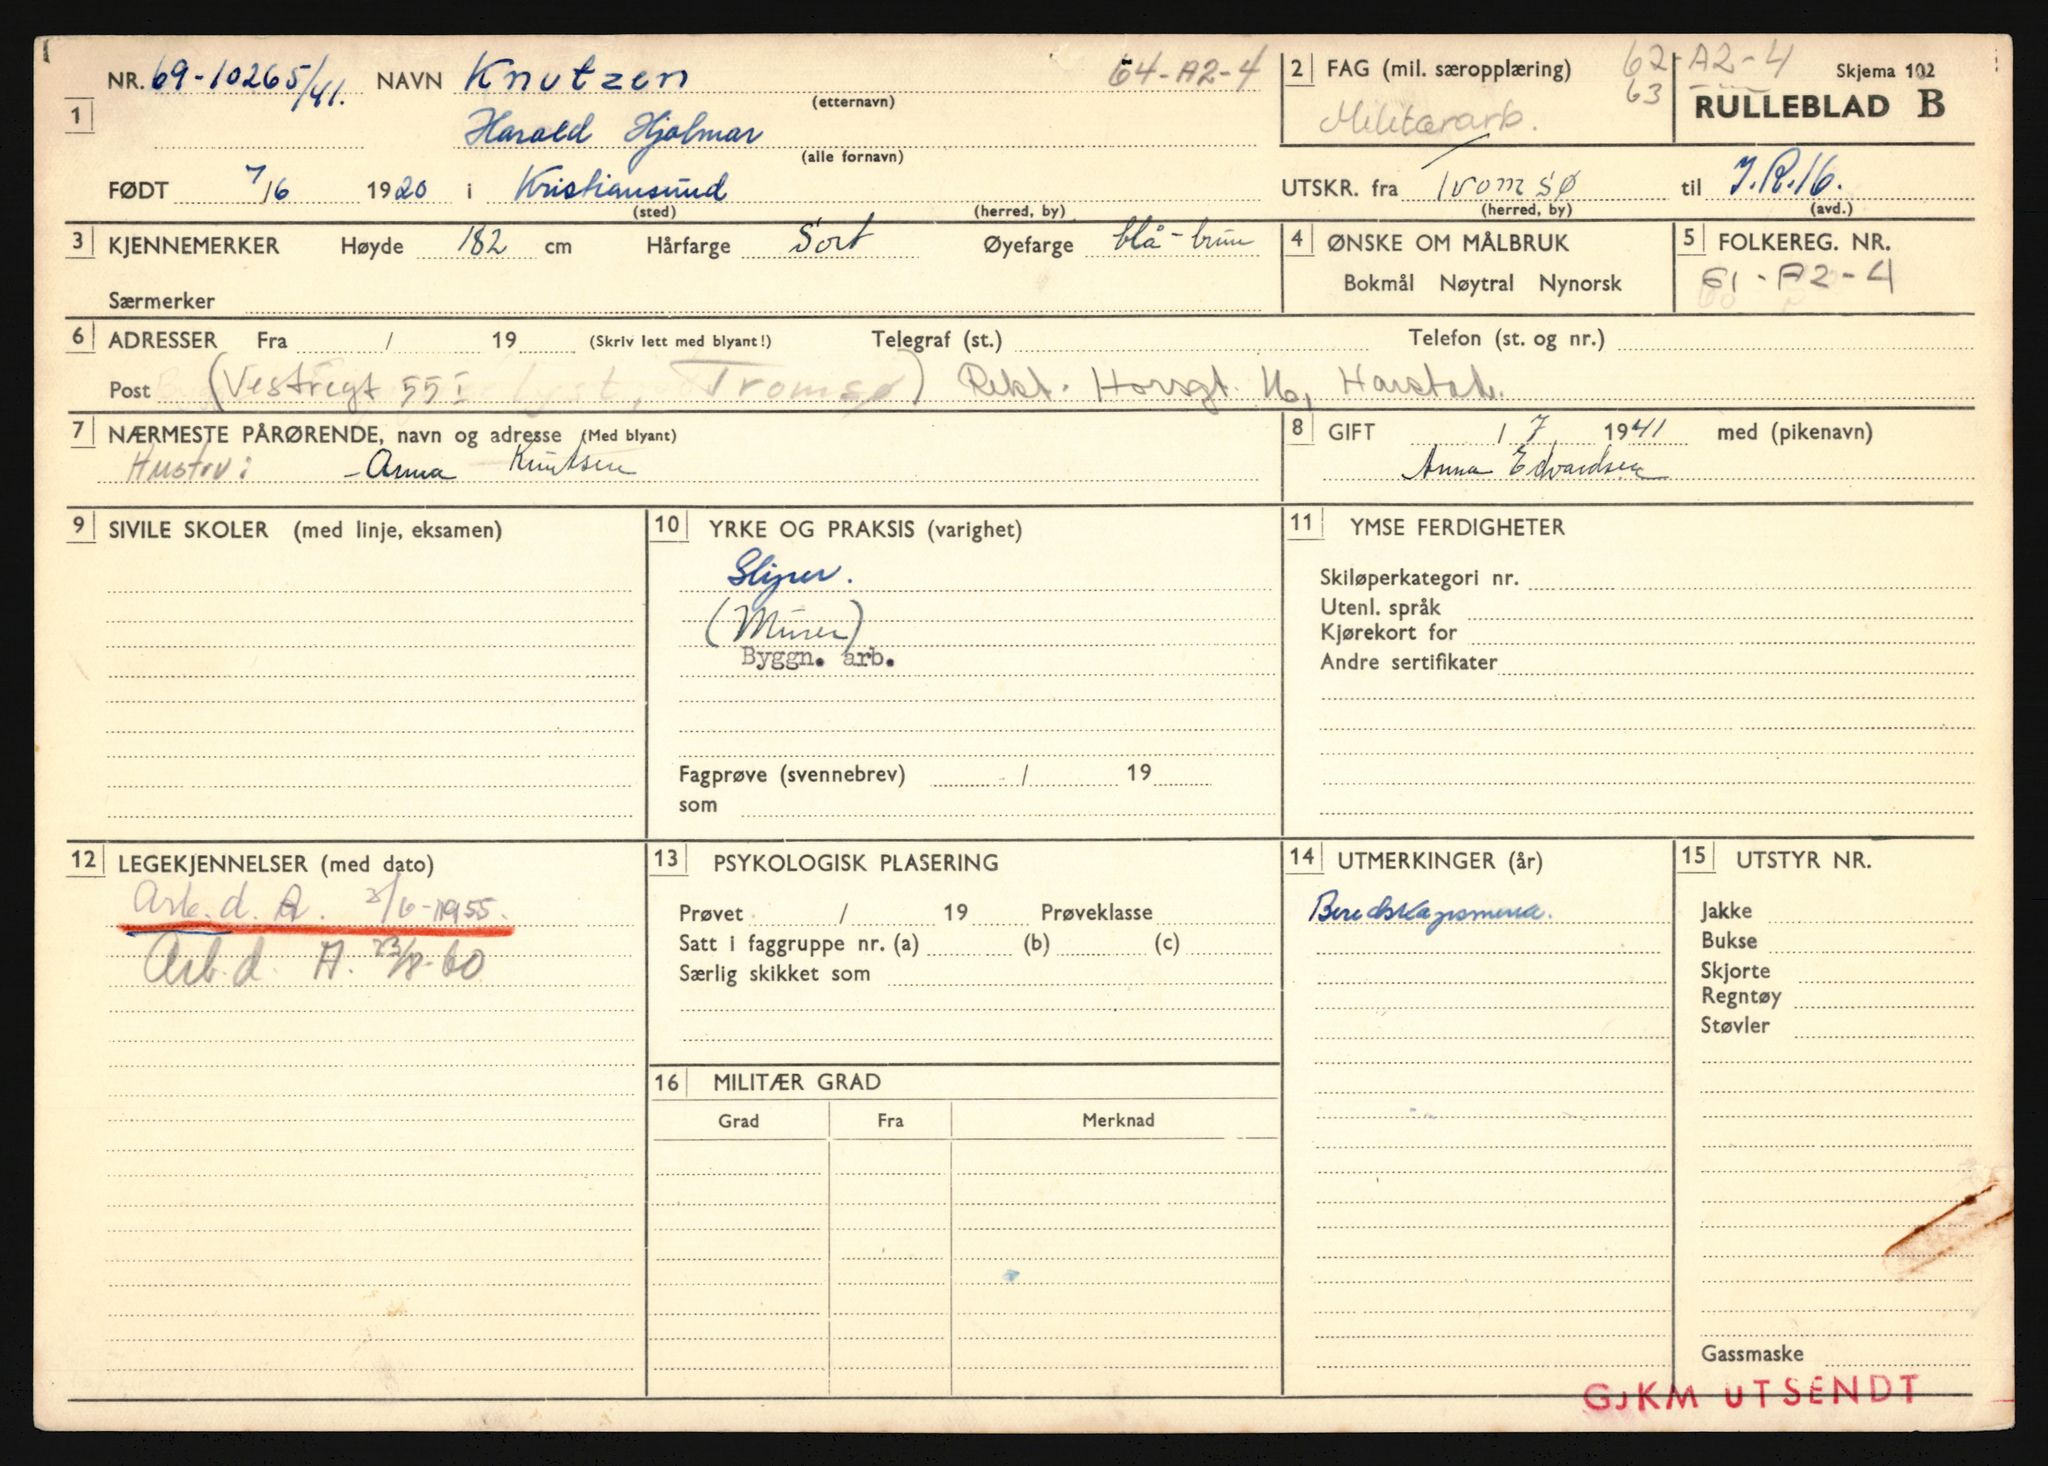 NR. 69-10265/41. NAVN Knutzen 64-A2-4
(etternavn)
1
Harald Hjalmar
(alle fornavn)
FØDT 7/6 1920 i Kristiansund
(sted) (herred, by)
2 FAG (mil. særopplæring) 62-A2-4 Skjema 102
63
Militærarb. RULLEBLAD B
UTSKR. fra Tromsø til J.R.16.
(herred, by) (avd.)
3 KJENNEMERKER Høyde 182 cm Hårfarge Sort Øyefarge blå-brun
Særmerker
4 ØNSKE OM MÅLBRUK
Bokmål Nøytral Nynorsk
5 FOLKEREG. NR.
61-A2-4
6 ADRESSER Fra / 19 (Skriv lett med blyant!) Telegraf (st.) Telefon (st. og nr.)
Post (Vestregt 55 I Tromsø) Rekt. Horsgt. 16, Harstad.
7 NÆRMESTE PÅRØRENDE, navn og adresse (Med blyant)
Hustru: - Anna Knutsen
8 GIFT 1/7 1941 med (pikenavn)
Anna Edvardsen
9 SIVILE SKOLER (med linje, eksamen)
10 YRKE OG PRAKSIS (varighet)
Sliper.
(Murer)
Byggn. arb.
Fagprøve (svennebrev) / 19
som
11 YMSE FERDIGHETER
Skiløperkategori nr.
Utenl. språk
Kjørekort for
Andre sertifikater
12 LEGEKJENNELSER (med dato)
Arb. d. A. 3/6-1955.
Arb. d. A. 23/8-60
13 PSYKOLOGISK PLASERING
Prøvet / 19 Prøveklasse
Satt i faggruppe nr. (a) (b) (c)
Særlig skikket som
14 UTMERKINGER (år)
Beredskapsmerke.
15 UTSTYR NR.
Jakke
Bukse
Skjorte
Regntøy
Støvler
Gassmaske
16 MILITÆR GRAD
Grad Fra Merknad
GJKM UTSENDT